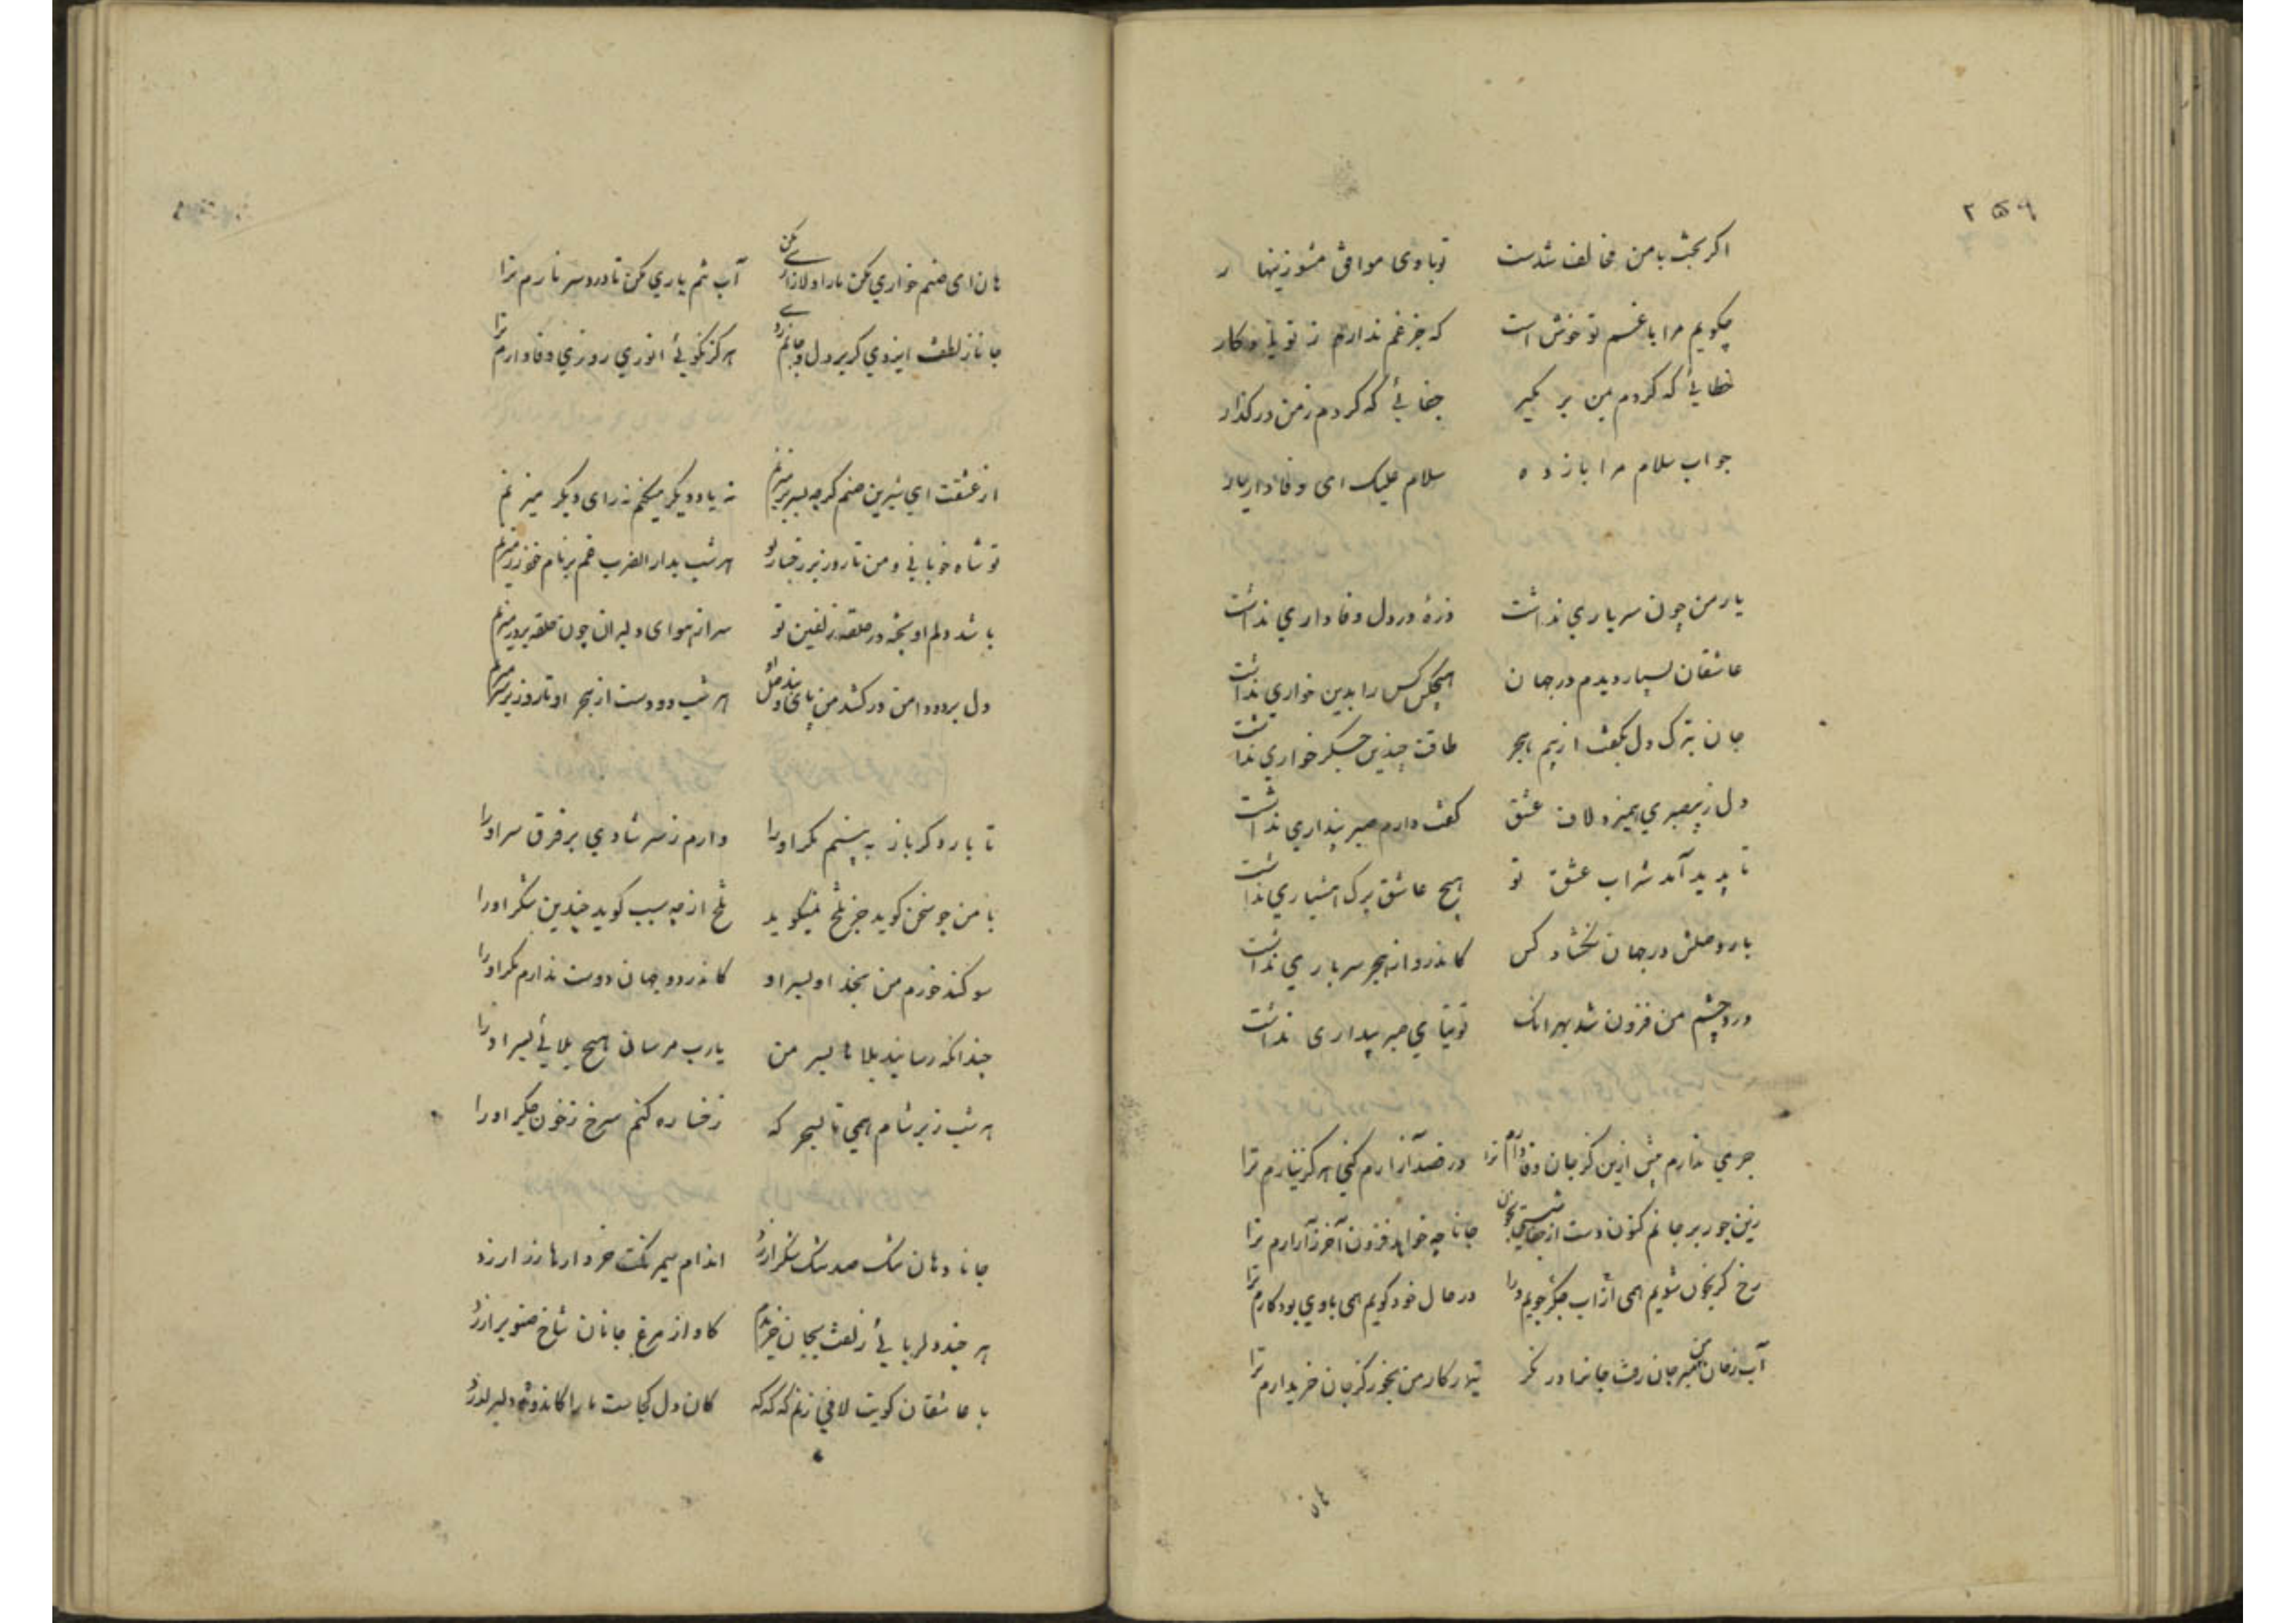 ۲۵۹
اکر بخت با من مخالف شدست تو باوی موافق مشو زینهار
چکویم مرا با غم تو خوش است که جز غم ندارم ز تو یادکار
خطائی که کردم بمن بر مکیر جفائی که کردم زمن درکذار
جواب سلام مرا باز ده سلام علیک ای وفادار یار
یار من چون سر یاری نداشت ذرهٔ در دل وفاداری نداشت
عاشقان بسیار دیدم در جهان هیچکس کس را بدین خواری نداشت
جان بترک دل بکفت از بیم هجر طاقت چندین جکر خواری نداشت
دل ز بیصبری همیزد لاف عشق کفت دارم صبر پنداری نداشت
تا پدید آمد شراب عشق تو هیچ عاشق برک هشیاری نداشت
بار وصلش در جهان نکشاد کس کاندرو از هجر سرباری نداشت
درد چشم من فزون شد بهر انک توتیای صبر پنداری نداشت
جرمی ندارم بیش ازین کز جان وفادارم ترا ور قصد آزارم کنی هرکز نیازارم ترا
زین جور بر جانم کنون دست از جفا شستی بخون جانا چه خواهد فزون آخر ز آزارم ترا
رخ کر بخون شویم همی آب از جکر جویم ترا در حال خود کویم همی یادی بود کارم ترا
آب زخان من مبر جان رفت جانرا در نکر تیمار کار من بخور کز جان خریدارم ترا
هان
هان ای صنم خواری مکن ما را دلازاری مکن آب شم یاری مکن تا درد سر نارم ترا
جانا ز لطف ایزدی کر بر دل و جانم زدی هرکز نکوئی انوری روزی وفادارم ترا
از عشقت ای شیرین صنم کرچه بسر بر میزنم نه یاد دیکر میکنم نه رای دیکر میزنم
تو شاه خوبانی و من تا روز بر رخسار تو هر شب بدار الضرب غم بر نام خود زر میزنم
باشد دلم اویخته در حلقه زلفین تو سر از هوای دلبران چون حلقه بر در میزنم
دل برد و دامن درکشد من پای مانده در کل هر شب دو دست از هجر او تا روز بر سر میزنم
تا بار دکر باز به بینم مکر او را دارم ز سر شادی بر فرق سر او را
با من چو سخن کوید جز تلخ نمیکوید تلخ از چه سبب کوید چندین شکر او را
سوکند خورم من بخدا و بسر او کاندر دو جهان دوست ندارم مکر او را
چندانکه رسانید بلاها بسر من یارب مرسان هیچ بلائی بسر او را
هر شب ز بر شام همی تا بسحر که رخساره کنم سرخ ز خون جکر او را
جانا دهان تنک صد تنک شکر ارزد اندام سیم رنکت خروارها زر ارزد
هر چند دلربائی زلفت بجان خریدم کاواز مرغ جانان شاخ صنوبر ارزد
با عاشقان کویت لافی زنم که که که کان دل کجاست ما را کاندوه دلبر ارزد